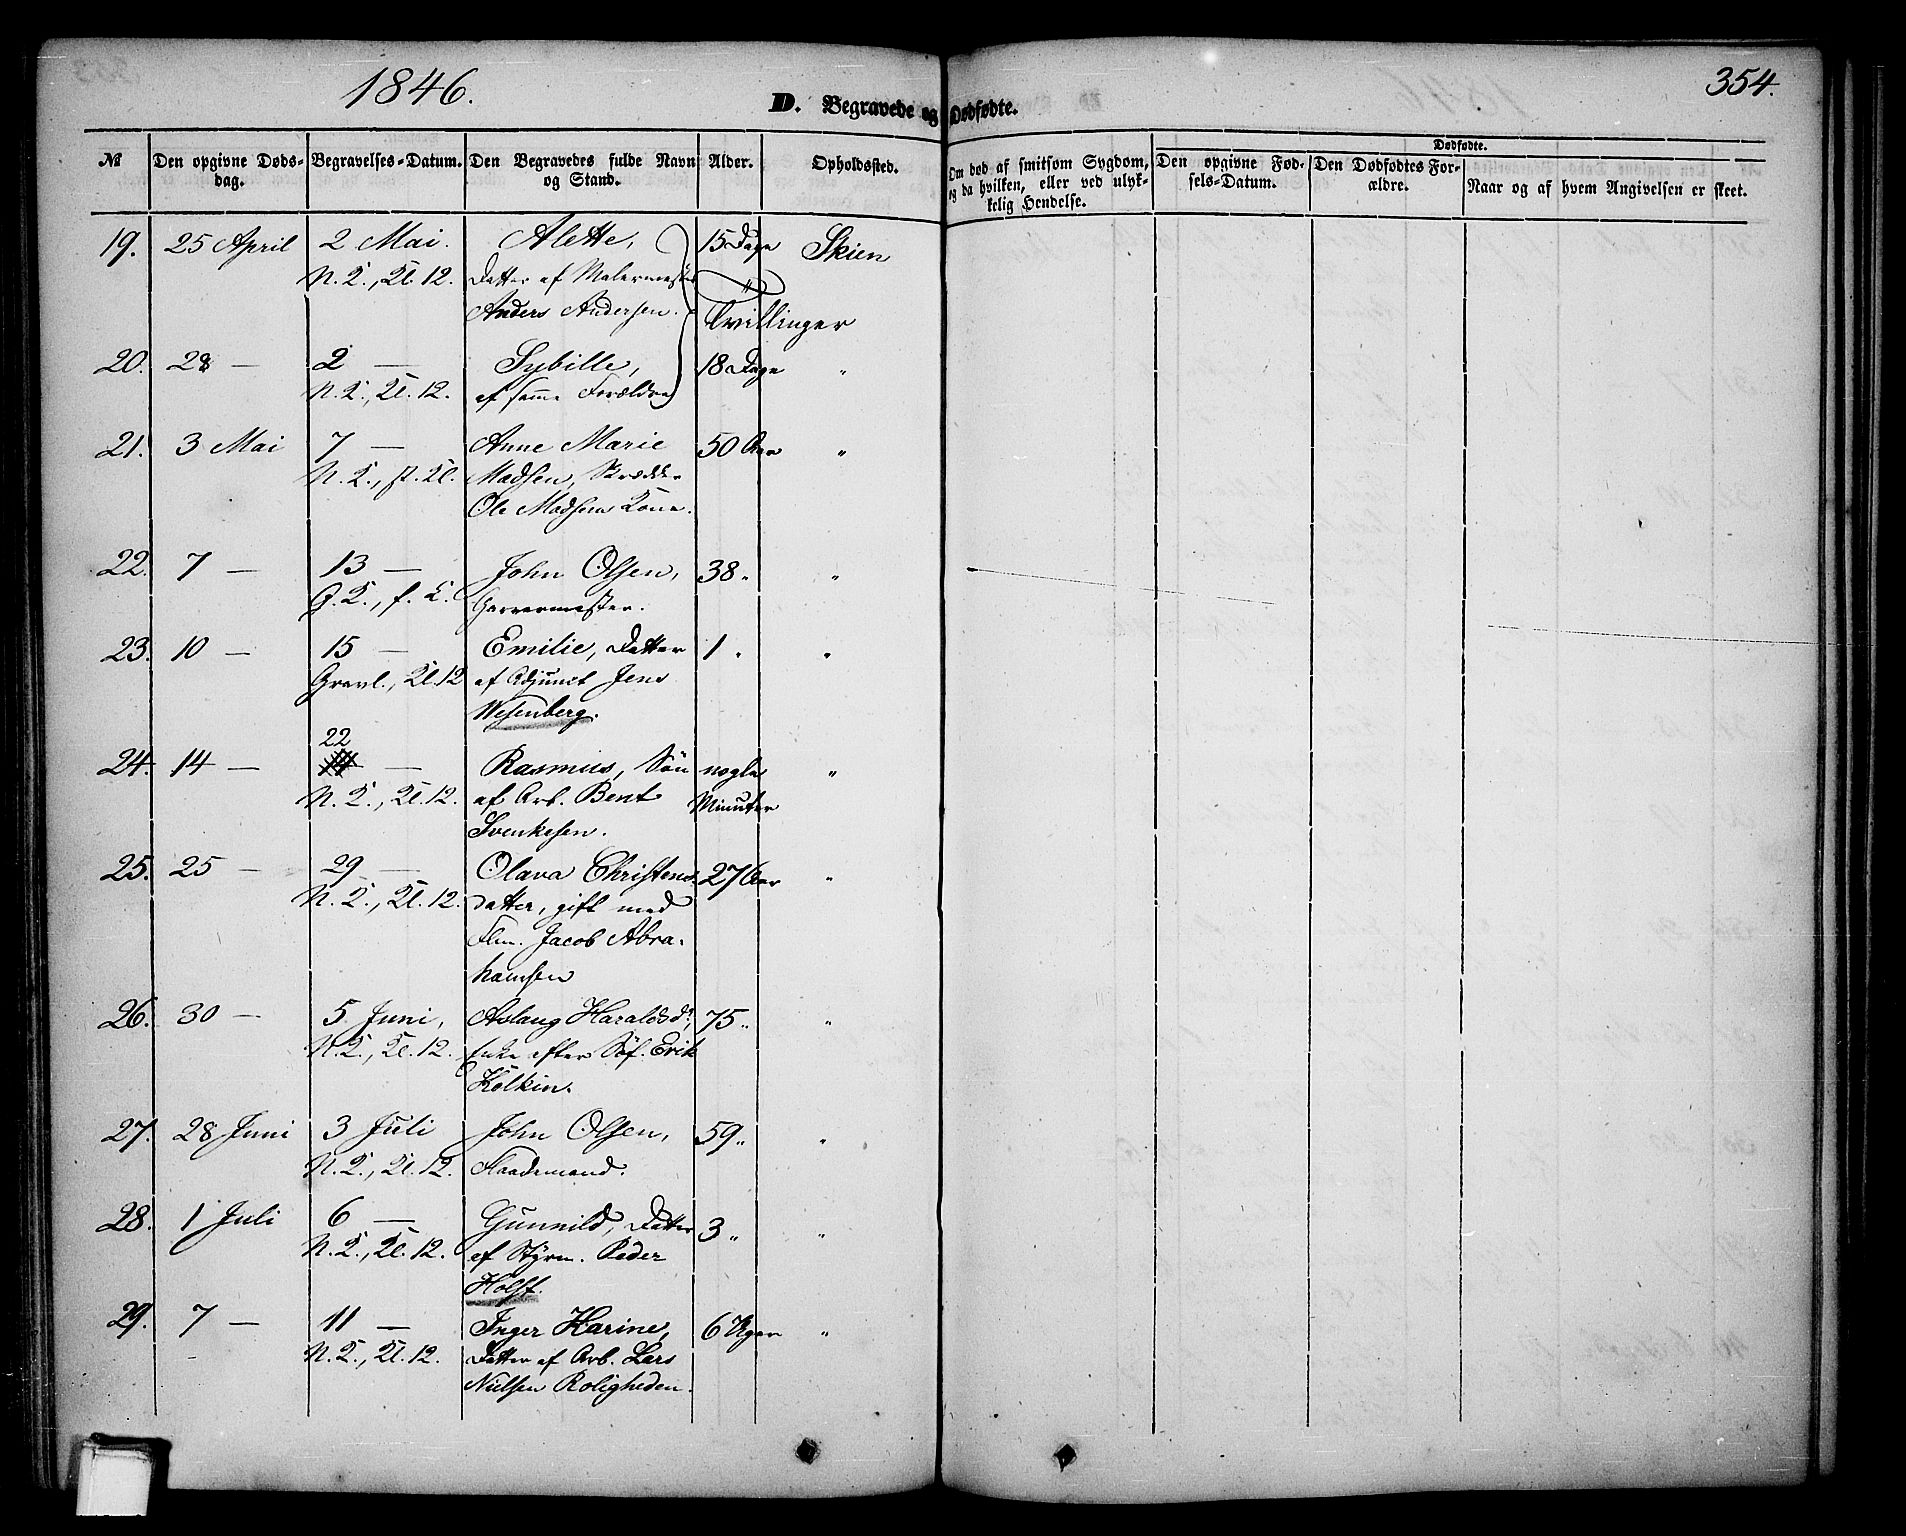 1846.
D. Begravede og Dødfødte.
354.
No
Den opgivne Døds-
dag.
Begravelses-Datum.
Den Begravedes fulde Navn
og Stand.
Alder.
Opholdssted.
Om død af smitsom Sygdom,
og da hvilken, eller ved ulyk-
kelig Hendelse.
Dødfødte.
Den opgivne Fød-
sels-Datum.
Den Dødfødtes For-
ældre.
Naar og af hvem Angivelsen er skeet.
19. 25 April 2 Mai. Alette, 15 Dage Skien
N. K., Kl. 12. Datter af Malermester
Anders Andersen. Tvillinger
20. 28 — 2 — Sybille, 18 Dage "
N. K., Kl. 12. af samme Forældre
21. 3 Mai 7 — Anne Marie 50 Aar "
N. K., f. Kl. Madsen, Skrædder
Ole Madsens Kone.
22. 7 — 13 — John Olsen, 38 " "
G. K., f. K. Garvermester.
23. 10 — 15 — Emilie, Datter 1 " "
Gravl., Kl. 12 af Adjunct Jens
Wesenberg.
22
24. 14 — — Rasmus, Søn nogle "
N. K., Kl. 12. af Arb. Bent Minuter
Svenkesen.
25. 25 — 29 — Olava Christens- 27 Aar "
N. K., Kl. 12. datter, gift med
Flm. Jacob Abra-
hamsen
26. 30 — 5 Juni, Aslaug Haraldsdr, 75 " "
N. K., Kl. 12. Enke efter Søf. Erik
Kolkin.
27. 28 Juni 3 Juli John Olsen, 59 " "
N. K., Kl. 12. Flaademand.
28. 1 Juli 6 — Gunnild, Datter 3 " "
N. K., Kl. 12. af Styrm. Peder
Holst.
29. 7 — 11 — Inger Karine, 6 Uger "
N. K., Kl. 12. Datter af Arb. Lars
Nielsen Roligheden.